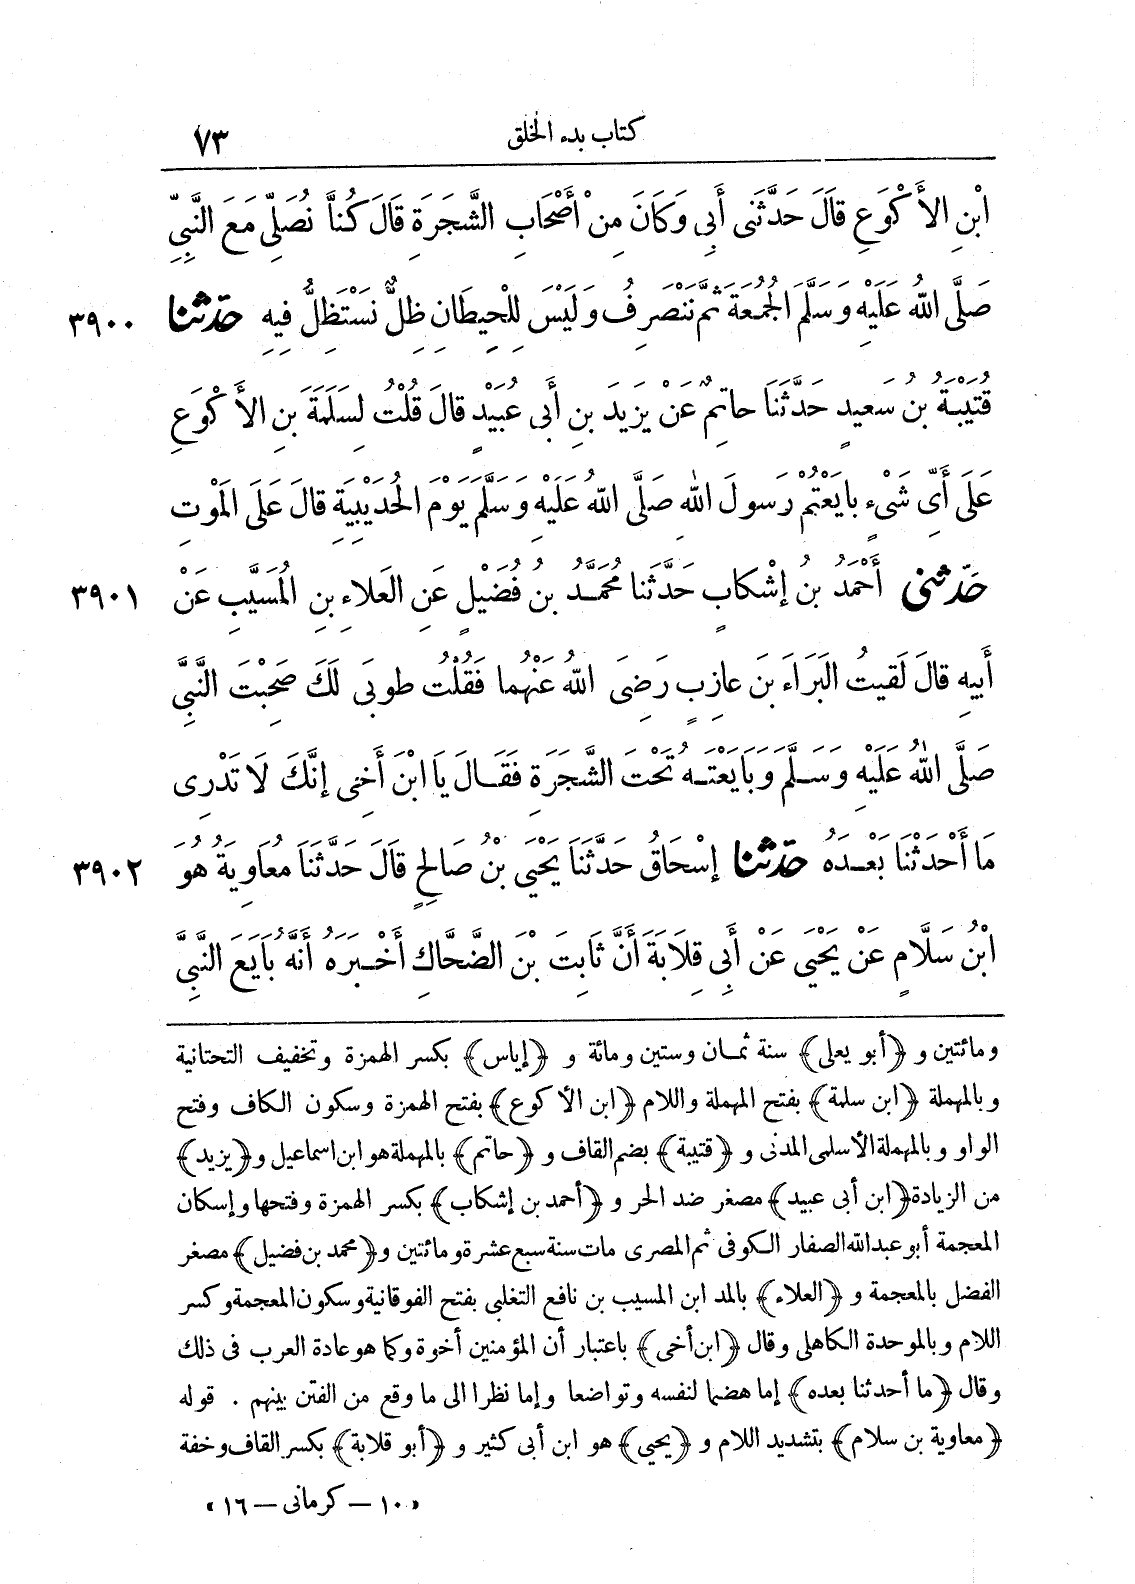 كتاب بدء الخلق ٧٣
ابْنِ الأَكْوَعِ قَالَ حَدَّثَنِى أَبِى وَكَانَ مِنْ أَصْحَابِ الشَّجَرَةِ قَالَ كُنَّا نُصَلِّى مَعَ النَّبِيِّ
صَلَّى اللهُ عَلَيْهِ وَسَلَّمَ الْجُمُعَةَ ثُمَّ نَنْصَرِفُ وَلَيْسَ لِلْحِيطَانِ ظِلٌّ نَسْتَظِلُّ فِيهِ حَدَّثَنَا ٣٩٠٠
قُتَيْبَةُ بْنُ سَعِيدٍ حَدَّثَنَا حَاتِمٌ عَنْ يَزِيدَ بنِ أَبِى عُبَيْدٍ قَالَ قُلْتُ لِسَلَمَةَ بنِ الأَكْوَعِ
عَلَى أَىِّ شَىْءٍ بَايَعْتُمْ رَسُولَ اللهِ صَلَّى اللهُ عَلَيْهِ وَسَلَّمَ يَوْمَ الْحُدَيْبِيَةِ قَالَ عَلَى الْمَوْتِ
حَدَّثَنِى أَحْمَدُ بنُ إِشْكَابٍ حَدَّثَنَا مُحَمَّدُ بنُ فُضَيْلٍ عَنِ الْعَلَاءِ بنِ الْمُسَيَّبِ عَنْ ٣٩٠١
أَبِيهِ قَالَ لَقِيتُ الْبَرَاءَ بنَ عَازِبٍ رَضِىَ اللهُ عَنْهُمَا فَقُلْتُ طُوبَى لَكَ صَحِبْتَ النَّبِيَّ
صَلَّى اللهُ عَلَيْهِ وَسَلَّمَ وَبَايَعْتَهُ تَحْتَ الشَّجَرَةِ فَقَالَ يَا ابْنَ أَخِى إِنَّكَ لَا تَدْرِى
مَا أَحْدَثْنَا بَعْدَهُ حَدَّثَنَا إِسْحَاقُ حَدَّثَنَا يَحْيَى بْنُ صَالِحٍ قَالَ حَدَّثَنَا مُعَاوِيَةُ هُوَ ٣٩٠٢
ابْنُ سَلَّامٍ عَنْ يَحْيَى عَنْ أَبِى قِلَابَةَ أَنَّ ثَابِتَ بْنَ الضَّحَّاكِ أَخْبَرَهُ أَنَّهُ بَايَعَ النَّبِيَّ
ومائتين و ﴿أبو يعلى﴾ سنة ثمان وستين ومائة و ﴿إياس﴾ بكسر الهمزة وتخفيف التحتانية
وبالمهملة ﴿ابن سلمة﴾ بفتح المهملة واللام ﴿ابن الأكوع﴾ بفتح الهمزة وسكون الكاف وفتح
الواو وبالمهملة الأسلمى المدنى و ﴿قتيبة﴾ بضم القاف و ﴿حاتم﴾ بالمهملة هو ابن اسماعيل و ﴿يزيد﴾
من الزيادة ﴿ابن أبى عبيد﴾ مصغر ضد الحر و ﴿أحمد بن إشكاب﴾ بكسر الهمزة وفتحها وإسكان
المعجمة أبو عبدالله الصفار الكوفى ثم المصرى مات سنة سبع عشرة ومائتين و ﴿محمد بن فضيل﴾ مصغر
الفضل بالمعجمة و ﴿العلاء﴾ بالمد ابن المسيب بن نافع التغلبى بفتح الفوقانية وسكون المعجمة وكسر
اللام وبالموحدة الكاهلى وقال ﴿ابن أخى﴾ باعتبار أن المؤمنين أخوة وكما هو عادة العرب فى ذلك
وقال ﴿ما أحدثنا بعده﴾ إما هضما لنفسه وتواضعا وإما نظرا الى ما وقع من الفتن بينهم . قوله
﴿معاوية بن سلام﴾ بتشديد اللام و ﴿يحيى﴾ هو ابن أبى كثير و ﴿أبو قلابة﴾ بكسر القاف وخفة
«١٠ – كرمانى – ١٦»